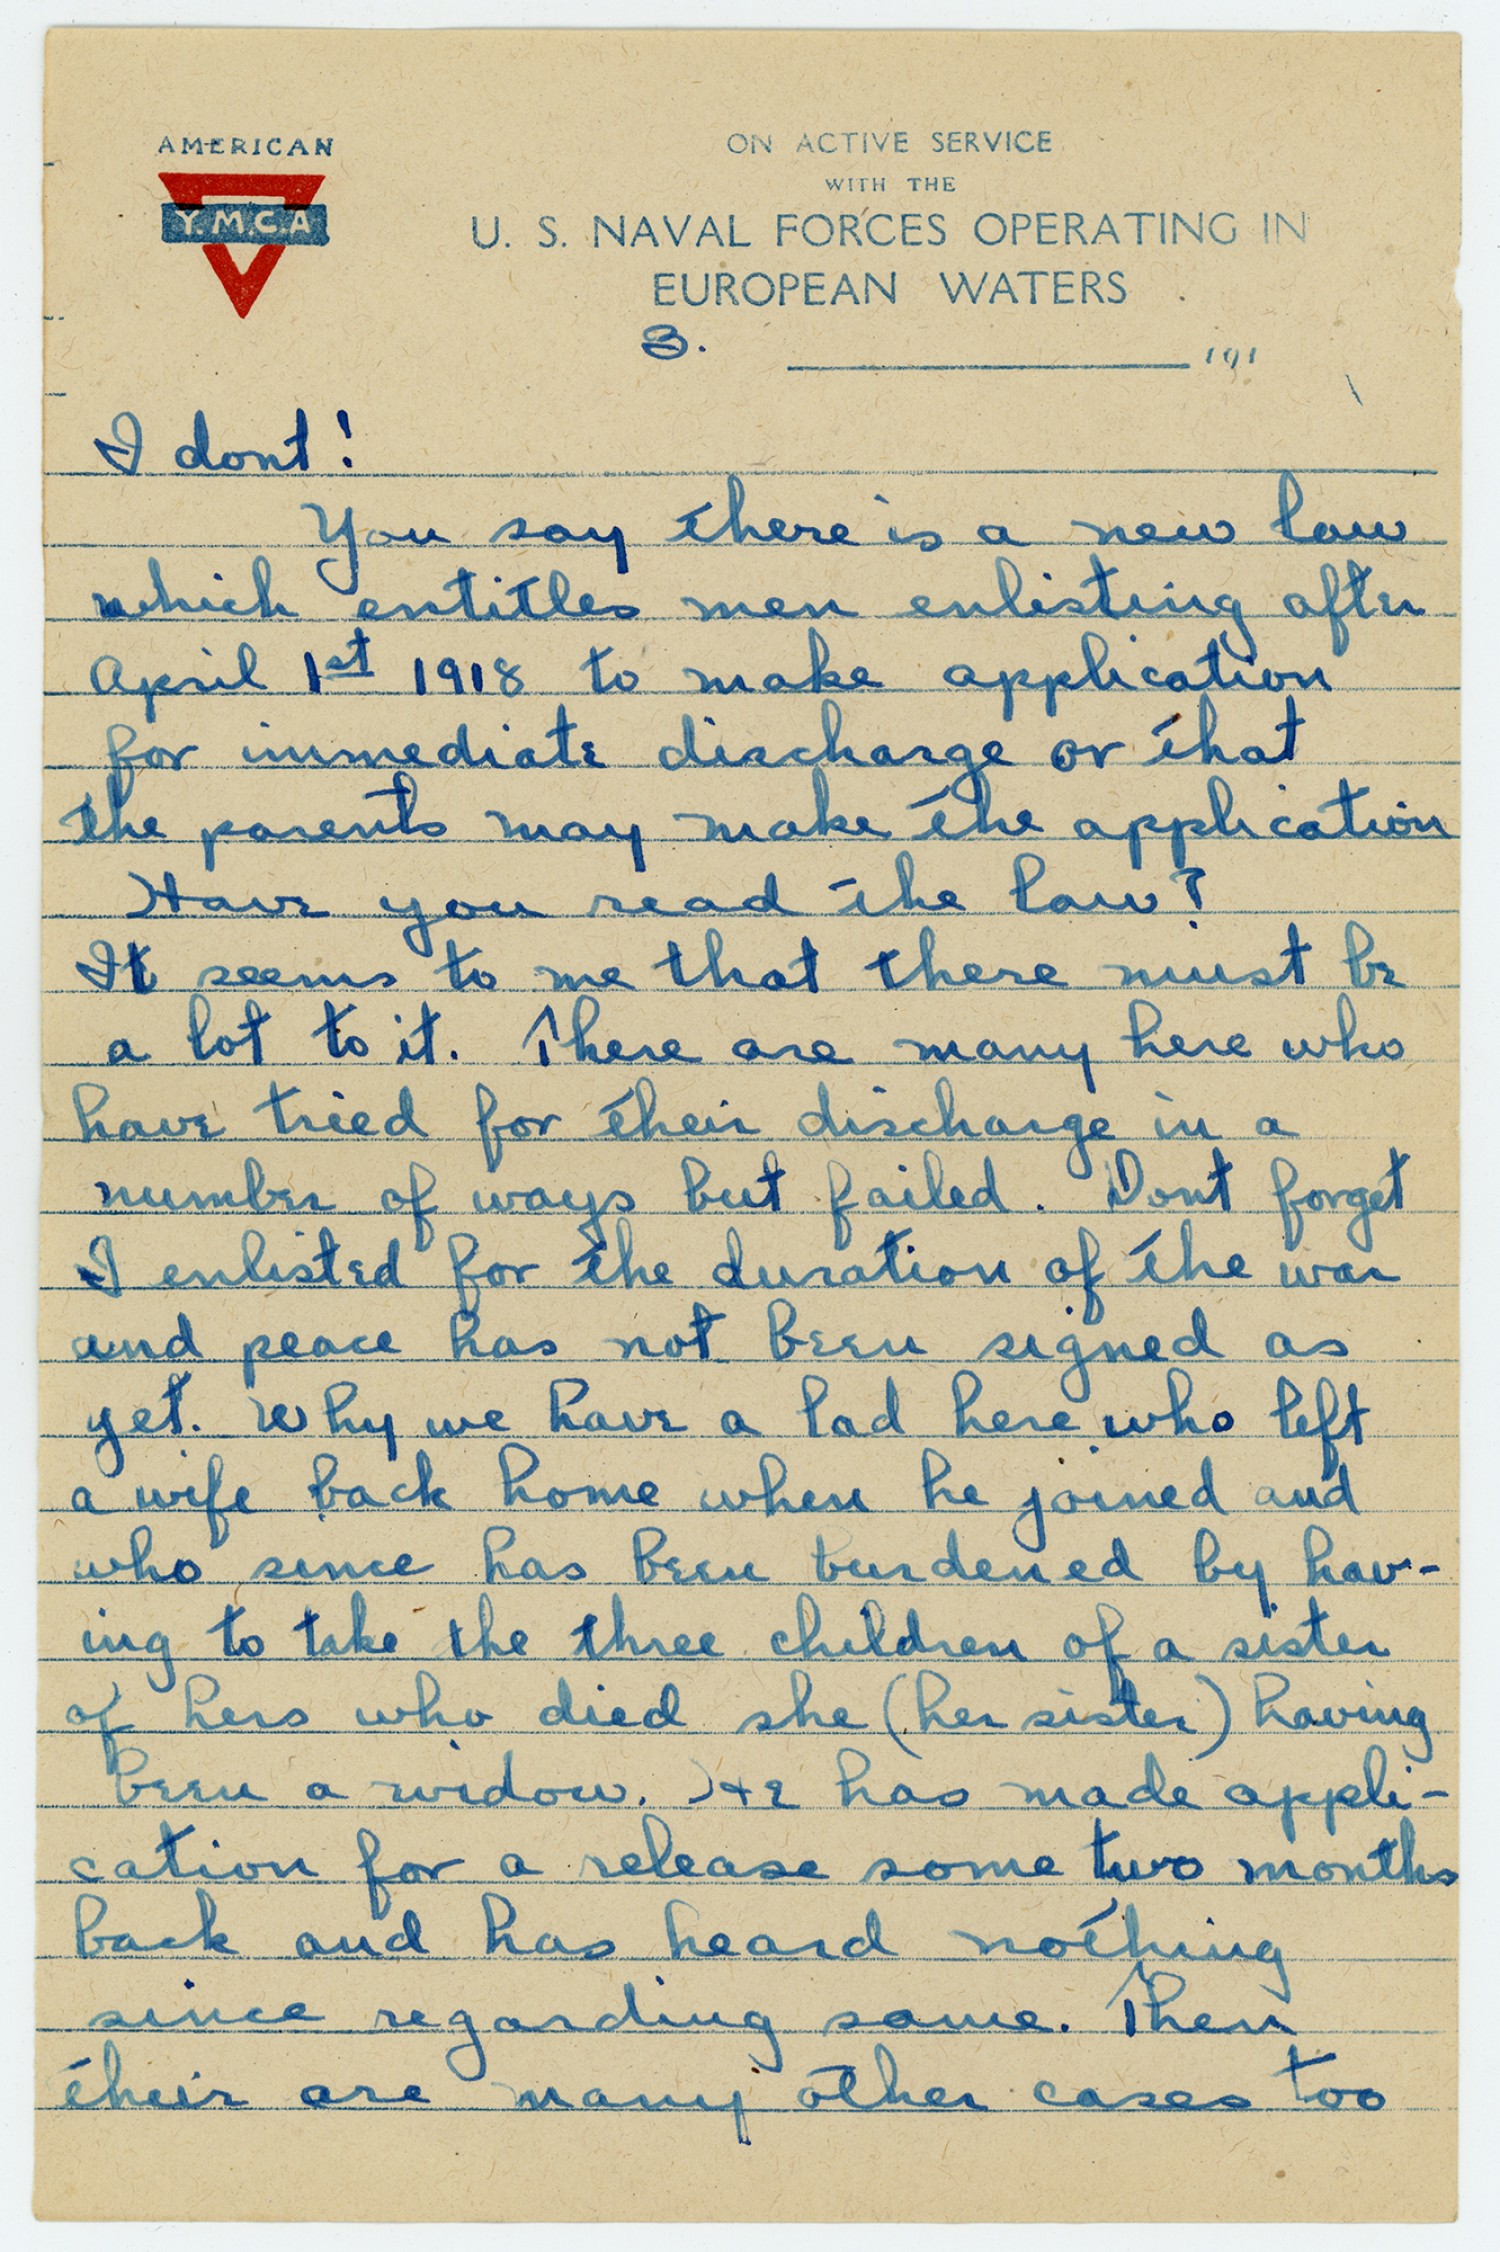 AMERICAN
Y.M.C.A
ON ACTIVE SERVICE
WITH THE
U. S. NAVAL FORCES OPERATING IN
EUROPEAN WATERS
3.
191
I dont!
You say there is a new law
which entitles men enlisting after
April 1st 1918 to make application
for immediate discharge or that
the parents may make the application
Have you read the law?
It seems to me that there must be
a lot to it. There are many here who
have tried for their discharge in a
number of ways but failed. Dont forget
I enlisted for the duration of the war
and peace has not been signed as
yet. Why we have a lad here who left
a wife back home when he joined and
who since has been burdened by hav-
ing to take the three children of a sister
of hers who died she (her sister) having
been a widow. He has made appli-
cation for a release some two months
back and has heard nothing
since regarding same. Then
their are many other cases too